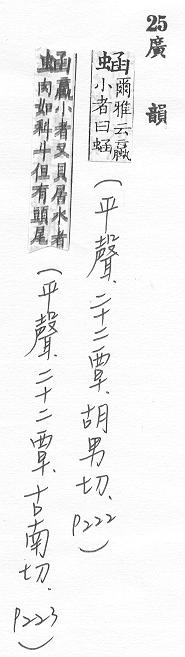 25廣韻
蜬爾雅云蠃小者曰蜬(平聲.二十二覃.胡男切.P222)
蜬蠃小者又貝居水者肉如科斗但有頭尾(平聲.二十二覃.古南切.P223)